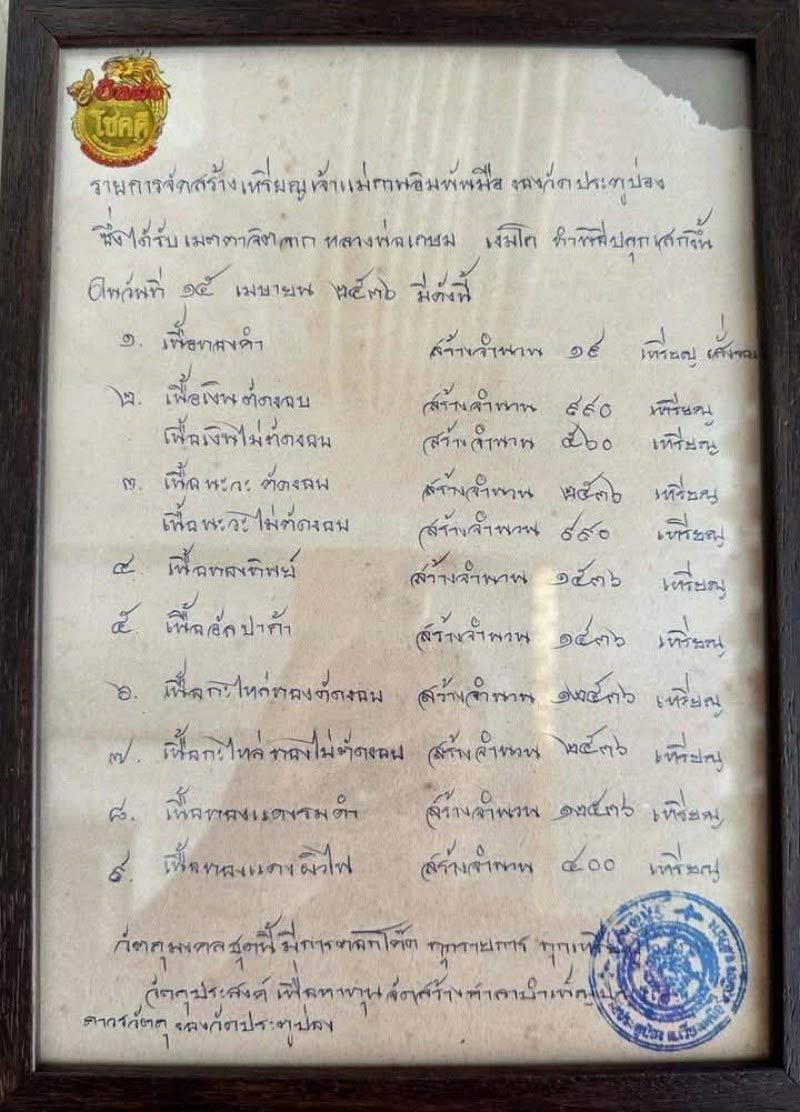 โชคดี
รายการจัดสร้างเหรียญเจ้าแม่กวนอิมพันมือ ของวัดประตูป่อง
ซึ่งได้รับเมตตาจิตจาก หลวงพ่อเกษม เขมโก ทำพิธีปลุกเสกขึ้น
ในวันที่ ๑๕ เมษายน ๒๕๓๖ มีดังนี้
๑. เนื้อทองคำ สร้างจำนวน ๑๙ เหรียญ
๒. เนื้อเงินตัดขอบ สร้างจำนวน ๙๙๐ เหรียญ
เนื้อเงินไม่ตัดขอบ สร้างจำนวน ๕๖๐ เหรียญ
๓. เนื้อนะวะ ตัดขอบ สร้างจำนวน ๒๕๓๖ เหรียญ
เนื้อนะวะไม่ตัดขอบ สร้างจำนวน ๙๙๐ เหรียญ
๔. เนื้อทองทิพย์ สร้างจำนวน ๑๕๓๖ เหรียญ
๕. เนื้ออัลปาก้า สร้างจำนวน ๑๕๓๖ เหรียญ
๖. เนื้อกะไหล่ทองตัดขอบ สร้างจำนวน ๑๒๕๓๖ เหรียญ
๗. เนื้อกะไหล่ทองไม่ตัดขอบ สร้างจำนวน ๒๕๓๖ เหรียญ
๘. เนื้อทองแดงรมดำ สร้างจำนวน ๑๒๕๓๖ เหรียญ
๙. เนื้อทองแดงผิวไฟ สร้างจำนวน ๔๐๐ เหรียญ
วัตถุมงคลชุดนี้ มีการตอกโค๊ต ทุกรายการ
วัตถุประสงค์ เพื่อหาทุนจัดสร้างศาลาบำเพ็ญ
ถาวรวัตถุ ของวัดประตูป่อง